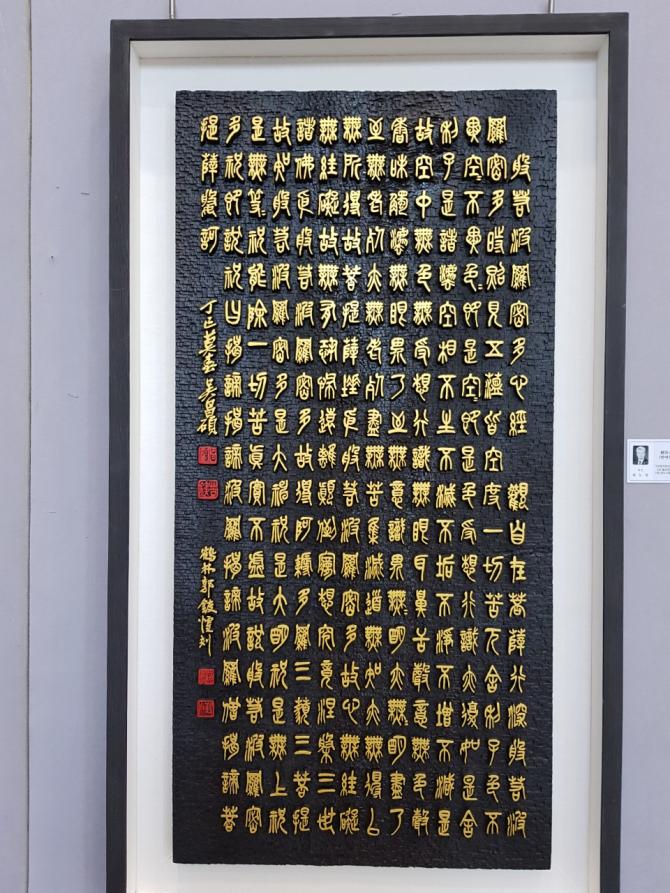 般若波羅密多心經 觀自在菩薩行深般若波
羅密多時照見五蘊皆空度一切苦厄舍利子色不
異空〻不異色〻即是空〻即是色受想行識亦復如是舍
利子是諸法空相不生不滅不垢不淨不增不減是
故空中無色無受想行識無眼耳鼻舌身意無色聲
香味觸法無眼界乃至無意識界無明亦無明盡乃
至無老死亦無老死盡無苦集滅道無知亦無得以
無所得故菩提薩埵依般若波羅密多故心無罣礙
無罣礙故無有恐怖遠離顛倒夢想究竟涅槃三世
諸佛依般若波羅密多故得阿耨多羅三藐三菩提
故知般若波羅密多是大神呪是大明呪是無上呪
是無等〻呪能除一切苦真實不虛故說般若波羅密
多呪即說呪曰揭諦揭諦波羅揭諦波羅僧揭諦菩
提薩婆訶
丁巳莫春 吳昌碩
鶴林郭刻